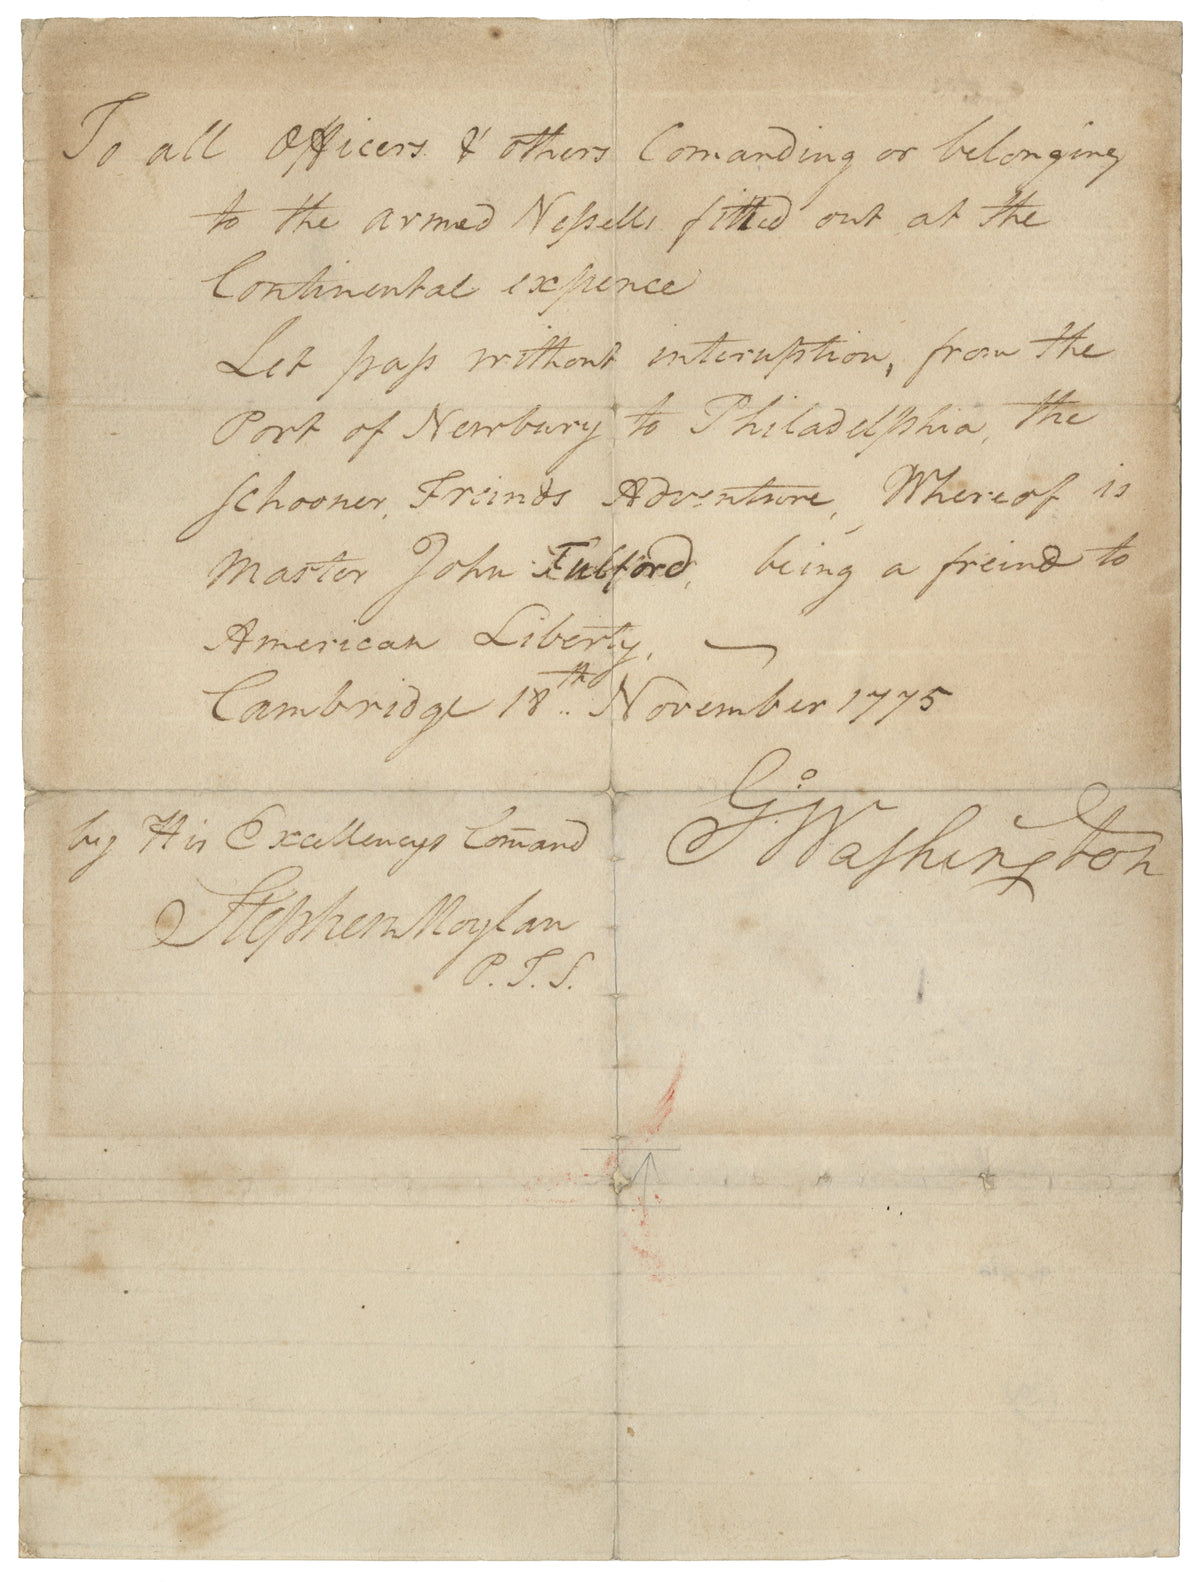 To all Officers & others Comanding or belonging
to the armed Vessells fitted out at the
Continental expence
Let pass without interuption, from the
Port of Newbury to Philadelphia, the
Schooner, Freinds Adventure, Whereof is
Master John Fulford, being a freind to
American Liberty,
Cambridge 18th November 1775
Go: Washington
by His Excellencys Comand
Stephen Moylan
P. T. S.